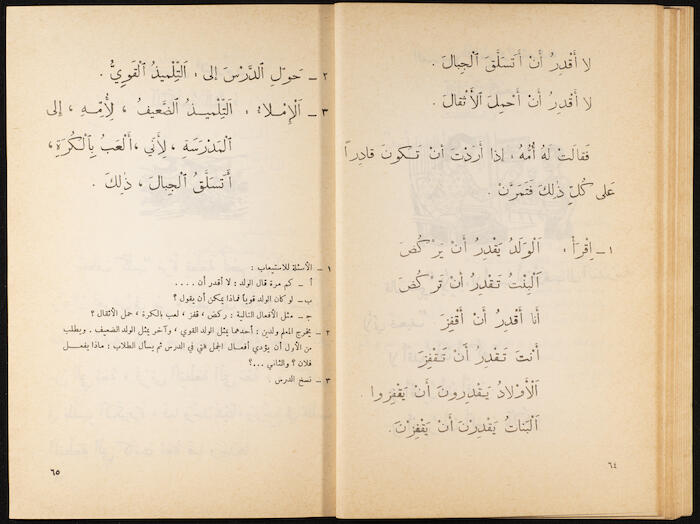 لا أَقْدِرُ أَنْ أَتَسَلَّقَ ٱلْجِبالَ.
لا أَقْدِرُ أَنْ أَحْمِلَ ٱلْأَثْقالَ.
فَقالَتْ لَهُ أُمُّهُ: إِذا أَرَدْتَ أَنْ تَكونَ قادِراً
عَلى كُلِّ ذٰلِكَ فَتَمَرَّنْ.
١ ـ اِقْرَأْ: اَلْوَلَدُ يَقْدِرُ أَنْ يَرْكُضَ
اَلْبِنْتُ تَقْدِرُ أَنْ تَرْكُضَ
أَنا أَقْدِرُ أَنْ أَقْفِزَ.
أَنتَ تَقْدِرُ أَنْ تَقْفِزَ
اَلْأَوْلادُ يَقْدِرونَ أَنْ يَقْفِزوا.
اَلْبَناتُ يَقْدِرْنَ أَنْ يَقْفِزْنَ.
٦٤
٢ ـ حَوِّلِ ٱلدَّرْسَ إِلى: اَلتِّلْميذُ ٱلْقَوِيُّ.
٣ ـ اَلْإِمْلاءُ: اَلتِّلْميذُ ٱلضَّعيفُ، لِأُمِّهِ، إِلى
ٱلْمَدْرَسَةِ، لِأَنّي، أَلْعَبُ بِٱلْكُرَةِ،
أَتَسَلَّقُ ٱلْجِبالَ، ذٰلِكَ.
١ ـ الأسئلة للاستيعاب:
أ ـ كم مرة قال الولد: لا أقدر أن ....
ب ـ لو كان الولد قوياً فماذا يمكن أن يقول؟
ج ـ مثل الأفعال التالية: ركض، قفز، لعب بالكرة، حمل الأثقال؟
٢ ـ يخرج المعلم ولدين: أحدهما يمثل الولد القوي، وآخر يمثل الولد الضعيف. ويطلب
من الأول أن يؤدي أفعال الجمل التي في الدرس ثم يسأل الطلاب: ماذا يفعل
فلان؟ والثاني ...؟
٣ ـ نسخ الدرس.
٦٥